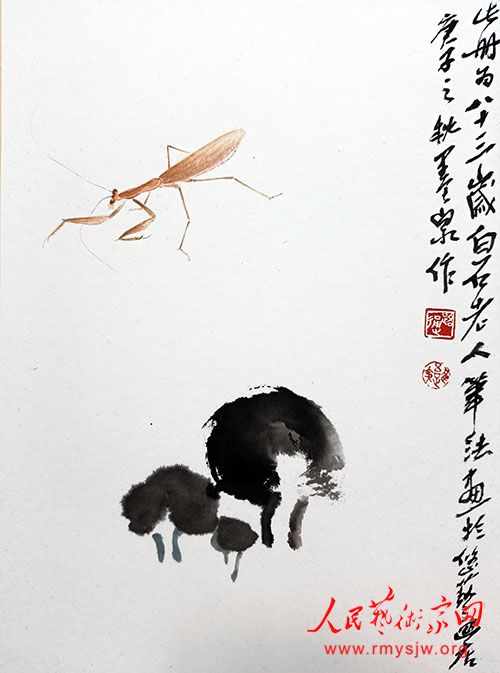 此册为八十三岁白石老人笔法画于悠
庚子之秋墨泉作
人民艺术家网
www.rmysjw.org